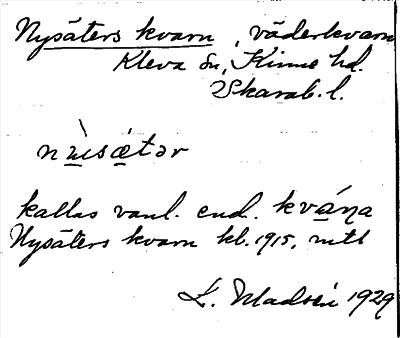 Nysäters kvarn, väderkvarn
Kleva sn, Kinne hd.
Skarab. l.
nùsætər
kallas vanl. end. kvánа
Nysäters kvarn kbl. 1915, mtl
L. Madsén 1929